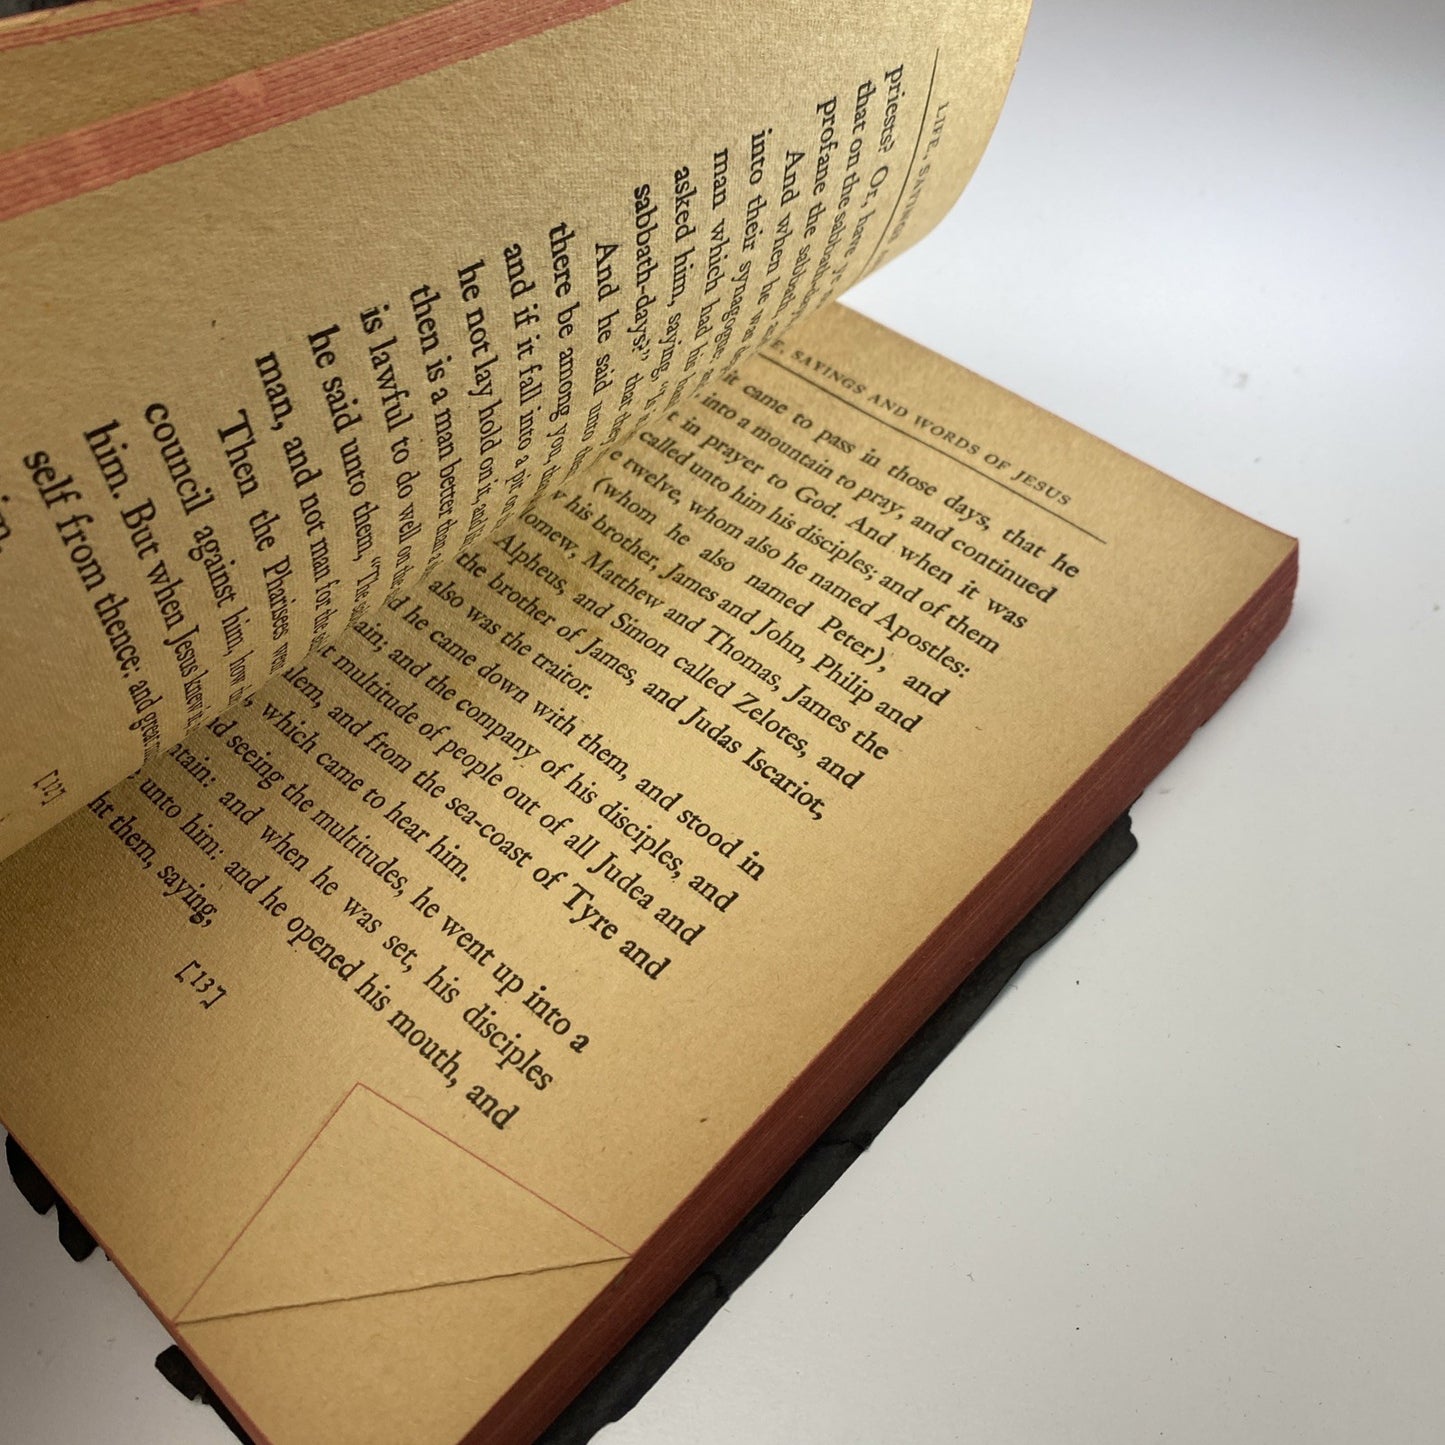 LIFE, SAYINGS
priests? Or, have ye
that on the sabbath
profane the sabbath
And when he
into their synagogue:
man which had his
asked him, saying, "Is it
sabbath-days?" that they
And he said unto
there be among you,
and if it fall into a pit on
he not lay hold on it, and
then is a man better than a
is lawful to do well on the
he said unto them, "The
man, and not man for the
Then the Pharisees went
council against him, how
him. But when Jesus knew it,
self from thence: and great
[12]
SAYINGS AND WORDS OF JESUS
it came to pass in those days, that he
into a mountain to pray, and continued
in prayer to God. And when it was
called unto him his disciples; and of them
twelve, whom also he named Apostles:
(whom he also named Peter), and
his brother, James and John, Philip and
Matthew and Thomas, James the
Alpheus, and Simon called Zelotes, and
the brother of James, and Judas Iscariot,
also was the traitor.
he came down with them, and stood in
and the company of his disciples, and
multitude of people out of all Judea and
and from the sea-coast of Tyre and
which came to hear him.
seeing the multitudes, he went up into a
and when he was set, his disciples
unto him: and he opened his mouth, and
them, saying,
[13]